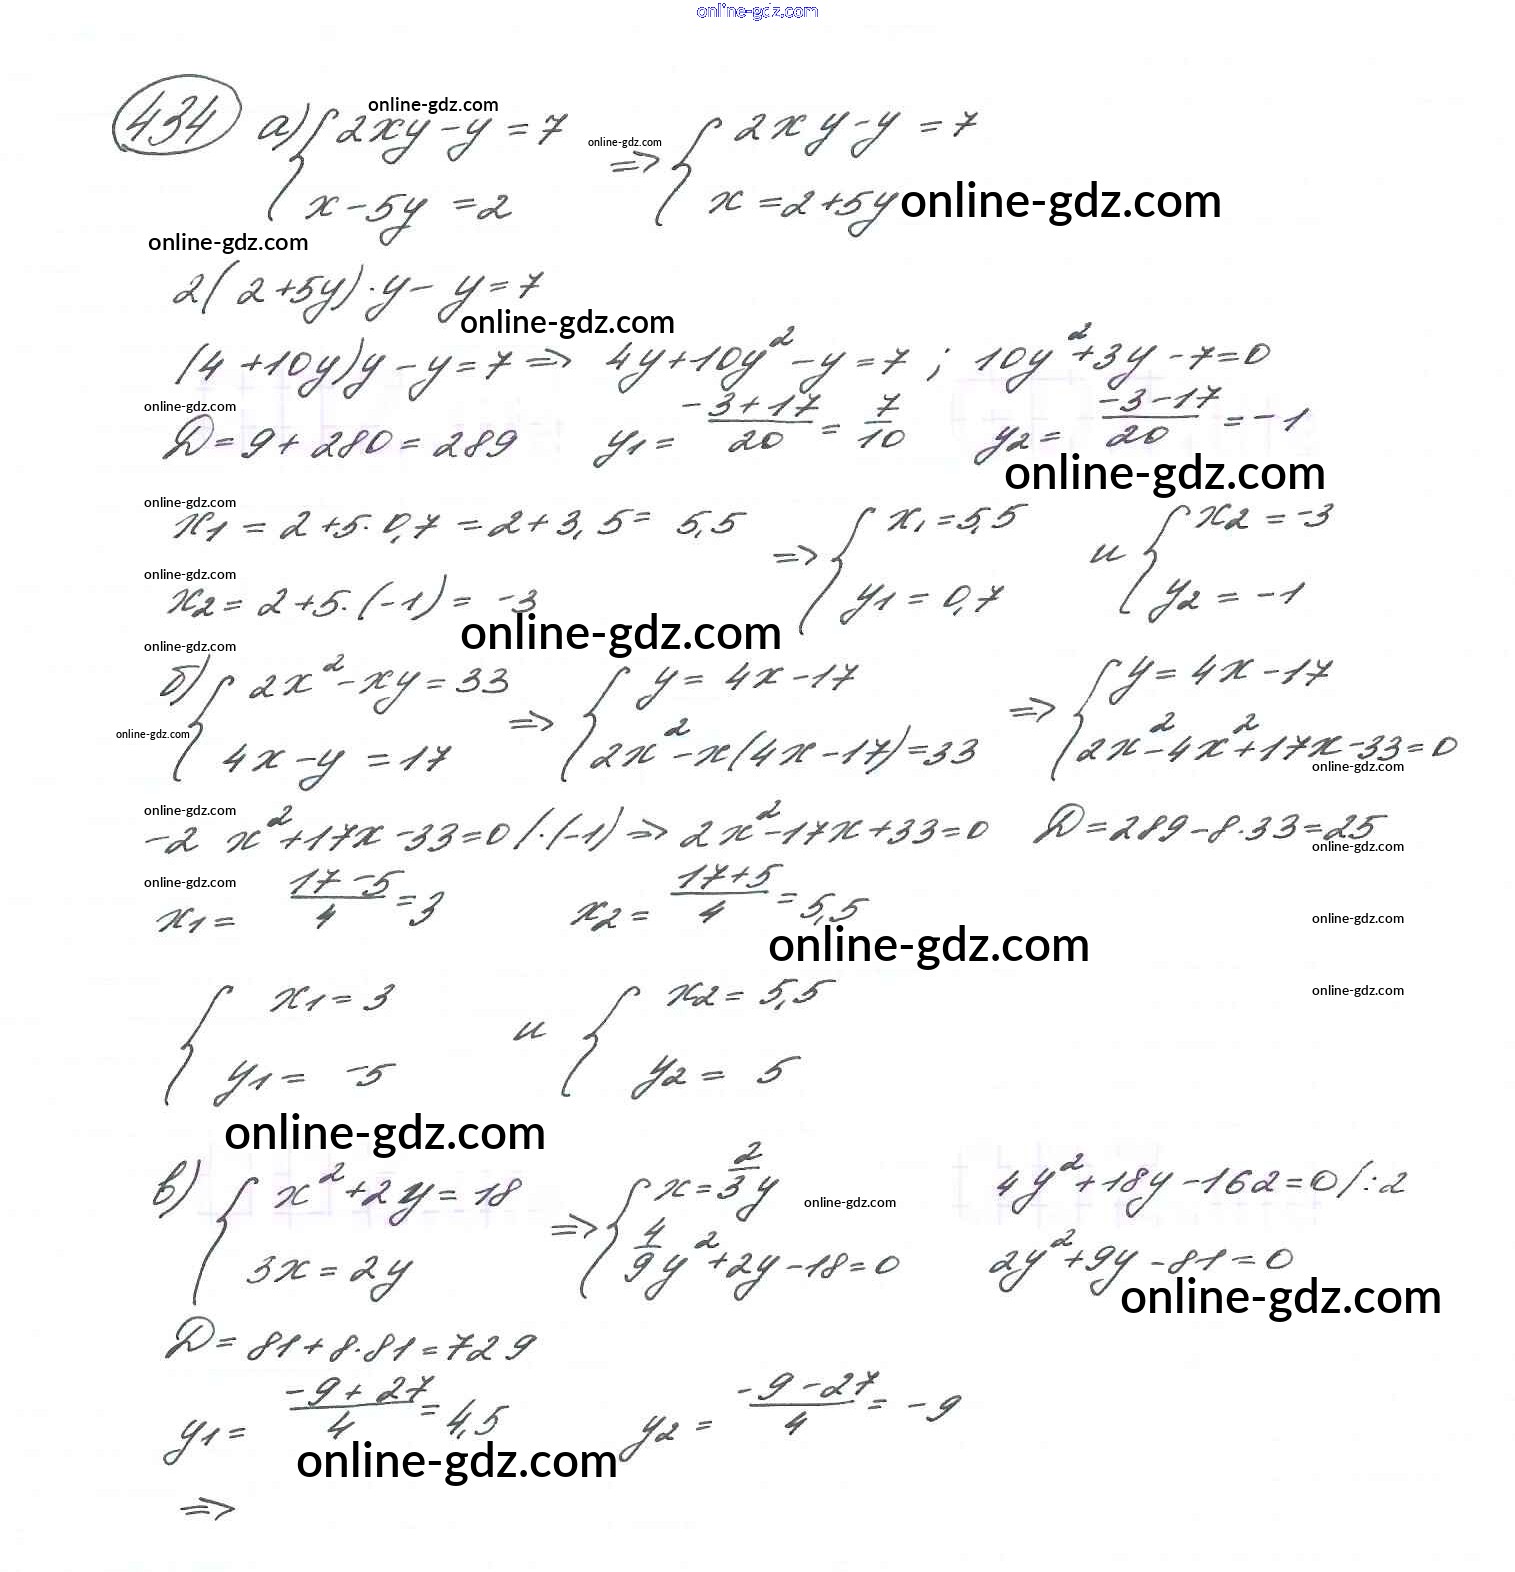 online-gdz.com
434 а) { 2xy - y = 7 online-gdz.com => { 2xy - y = 7
online-gdz.com
x - 5y = 2 x = 2 + 5y online-gdz.com
online-gdz.com
2(2 + 5y)·y - y = 7
online-gdz.com
(4 + 10y)y - y = 7 => 4y + 10y² - y = 7 ; 10y² + 3y - 7 = 0
online-gdz.com
D = 9 + 280 = 289 y1 = (-3 + 17)/20 = 7/10 y2 = (-3 - 17)/20 = -1
online-gdz.com
online-gdz.com
x1 = 2 + 5·0,7 = 2 + 3,5 = 5,5 => { x1 = 5,5 и { x2 = -3
online-gdz.com
x2 = 2 + 5·(-1) = -3 y1 = 0,7 y2 = -1
online-gdz.com
online-gdz.com
б) { 2x² - xy = 33 => { y = 4x - 17 => { y = 4x - 17
online-gdz.com
4x - y = 17 2x² - x(4x - 17) = 33 2x² - 4x² + 17x - 33 = 0
online-gdz.com
online-gdz.com
-2x² + 17x - 33 = 0 /·(-1) => 2x² - 17x + 33 = 0 D = 289 - 8·33 = 25
online-gdz.com
online-gdz.com
x1 = (17 - 5)/4 = 3 x2 = (17 + 5)/4 = 5,5
online-gdz.com
online-gdz.com
online-gdz.com
{ x1 = 3 и { x2 = 5,5
y1 = -5 y2 = 5
online-gdz.com
в) { x² + 2y = 18 => { x = 2/3 y online-gdz.com 4y² + 18y - 162 = 0 /:2
3x = 2y 4/9 y² + 2y - 18 = 0 2y² + 9y - 81 = 0
online-gdz.com
D = 81 + 8·81 = 729
y1 = (-9 + 27)/4 = 4,5 y2 = (-9 - 27)/4 = -9
online-gdz.com
=>